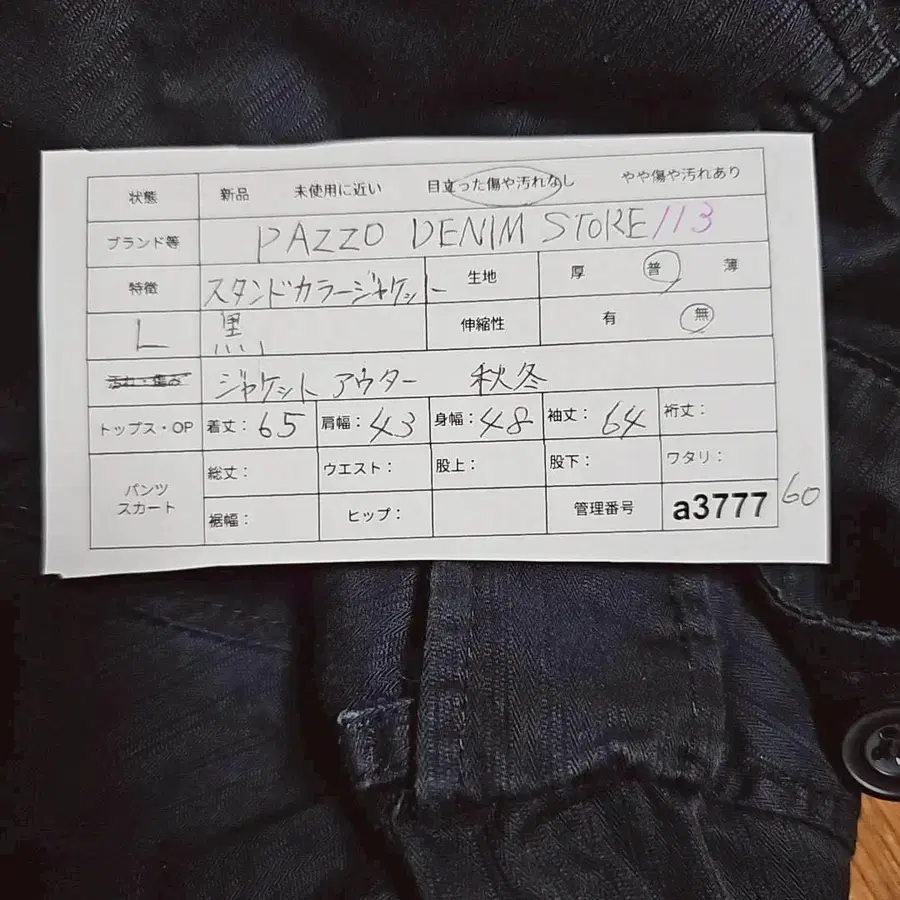 状態 新品 未使用に近い 目立った傷や汚れなし やや傷や汚れあり
ブランド等 PAZZO DENIM STORE 113
特徴 スタンドカラージャケット 生地 厚 普 薄
L 黒 伸縮性 有 無
汚れ・傷み ジャケット アウター 秋冬
トップス・OP 着丈:65 肩幅:43 身幅:48 袖丈:64 裄丈:
パンツ スカート 総丈: ウエスト: 股上: 股下: ワタリ:
裾幅: ヒップ: 管理番号 a3777 60